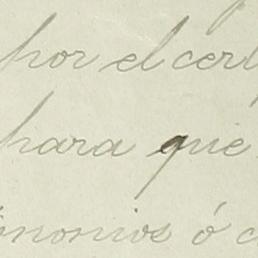 por el cert
para que
imonios ó c